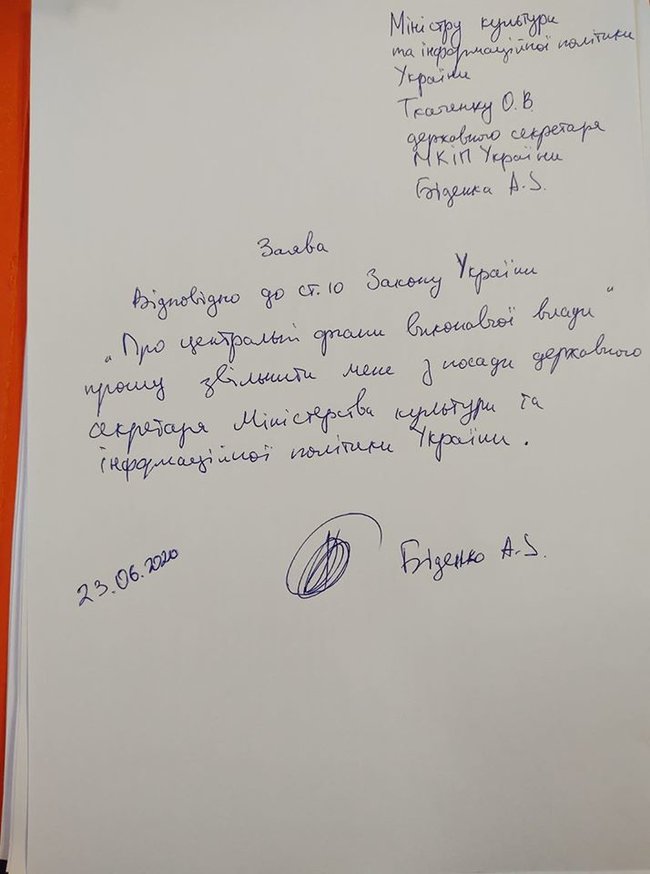 Міністру культури
та інформаційної політики
України
Ткаченку О.В
державного секретаря
МКІП України
Біденка А.І.
Заява
Відповідно до ст.10 Закону України
„Про центральні органи виконавчої влади"
прошу звільнити мене з посади державного
секретаря Міністерства культури та
інформаційної політики України.
23.06.2020
Біденко А.І.